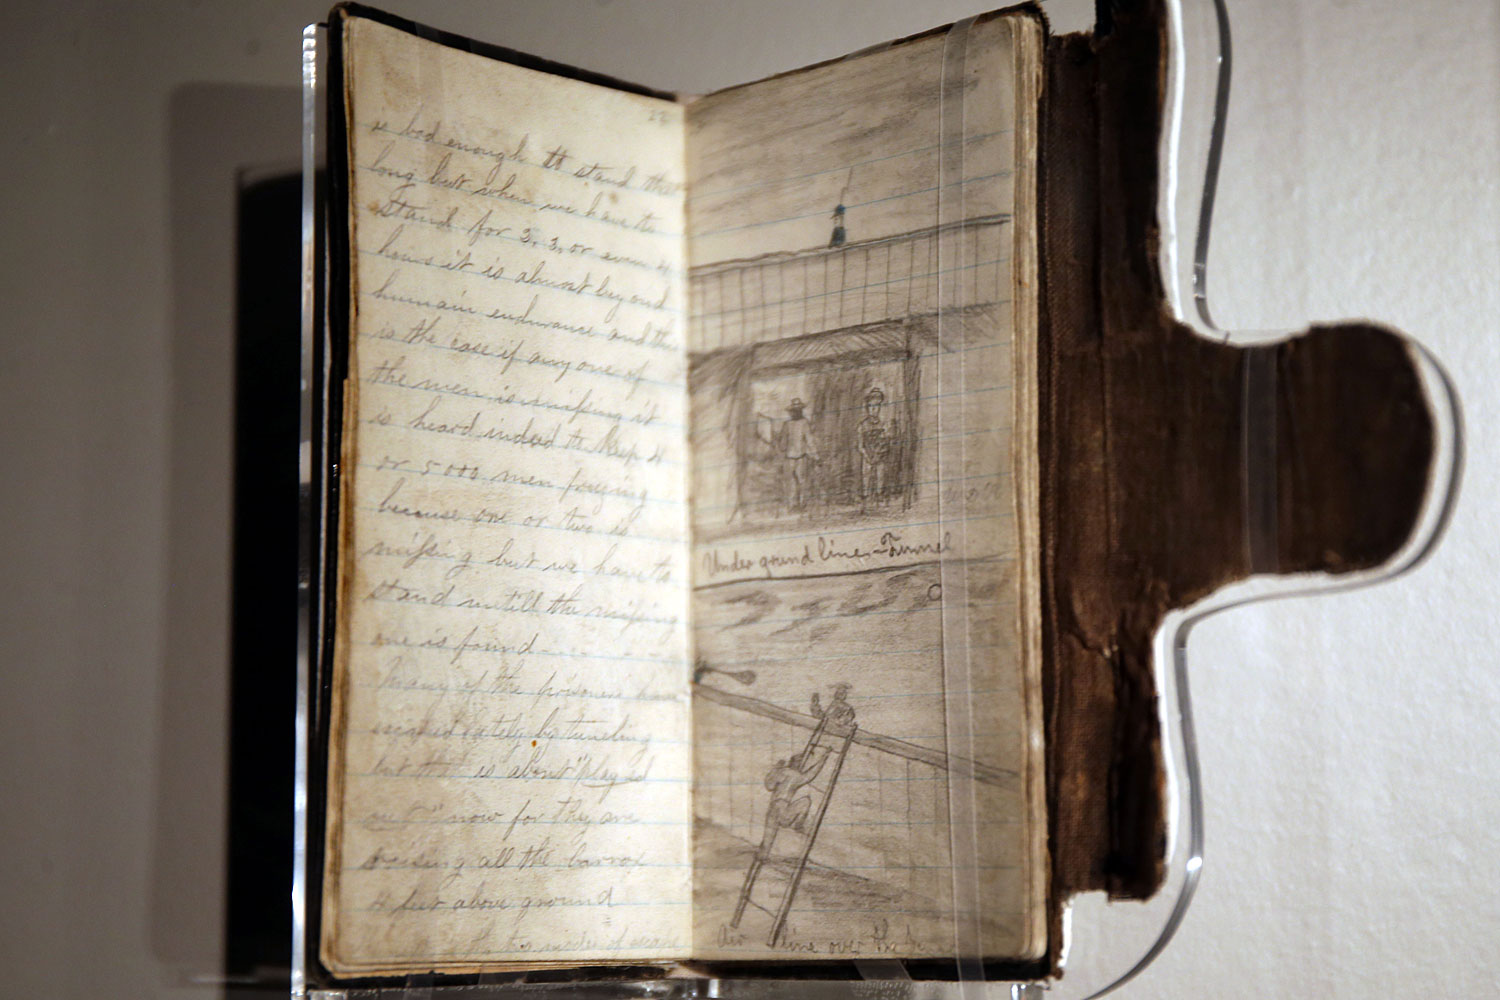 is bad enough to stand that
long but when we have to
stand for 3, 3, or even 4
hours it is almost beyond
humain endurance and this
is the case if any one of
the men is missing it
is heard indeed to keep 4
or 5000 men freezing
because one or two is
missig but we have to
stand untill the missing
one is found
Many of the prisoners have
escaped lately by tuneling
but that is about "played
out" now for they are
raising all the barrox
4 feet above ground
modes of escape
Under ground line - Tunnel
Air line over the